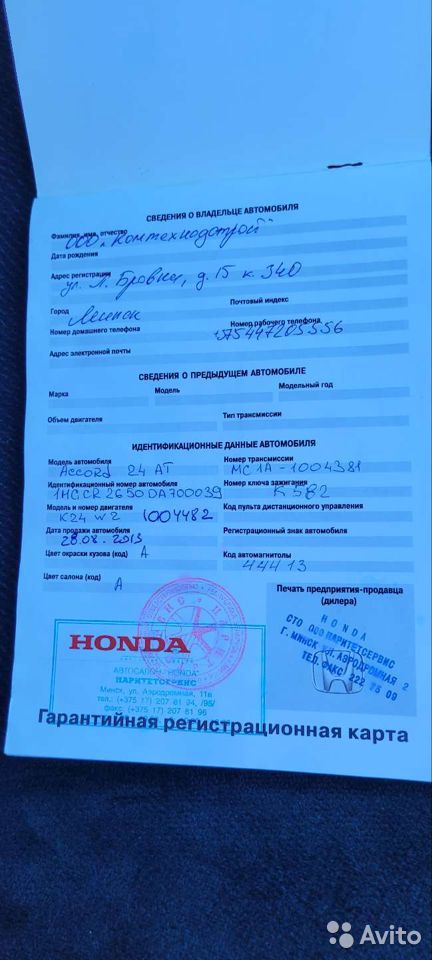 СВЕДЕНИЯ О ВЛАДЕЛЬЦЕ АВТОМОБИЛЯ
Фамилия, имя, отчество
ООО „Комтехнодотрой"
Дата рождения
Адрес регистрации
ул. П. Бровки, д. 15 к. 340
Город
Почтовый индекс
Минск
Номер домашнего телефона
Номер рабочего телефона
+375447205556
Адрес электронной почты
СВЕДЕНИЯ О ПРЕДЫДУЩЕМ АВТОМОБИЛЕ
Марка
Модель
Модельный год
Объем двигателя
Тип трансмиссии
ИДЕНТИФИКАЦИОННЫЕ ДАННЫЕ АВТОМОБИЛЯ
Модель автомобиля
Номер трансмиссии
Accord 2.4 AT
MC1A-1004381
Идентификационный номер автомобиля
Номер ключа зажигания
1HGCR2650DA700039
K582
Модель и номер двигателя
Код пульта дистанционного управления
K24W2 1004482
Дата продажи автомобиля
Регистрационный знак автомобиля
28.08.2013
Цвет окраски кузова (код)
A
Код автомагнитолы
44413
Цвет салона (код)
A
Печать предприятия-продавца
(дилера)
HONDA
СТО ООО ПАРИТЕТСЕРВИС
Г. МИНСК УЛ. АЭРОДРОМНАЯ 2
ТЕЛ. ФАКС 222 76 09
HONDA
АВТОСАЛОН "HONDA"
ПАРИТЕТСЕРВИС
Минск, ул. Аэродромная, 11а
тел.: (+375 17) 207 61 94, /95/
факс (+375 17) 207 61 96
Гарантийная регистрационная карта
Avito